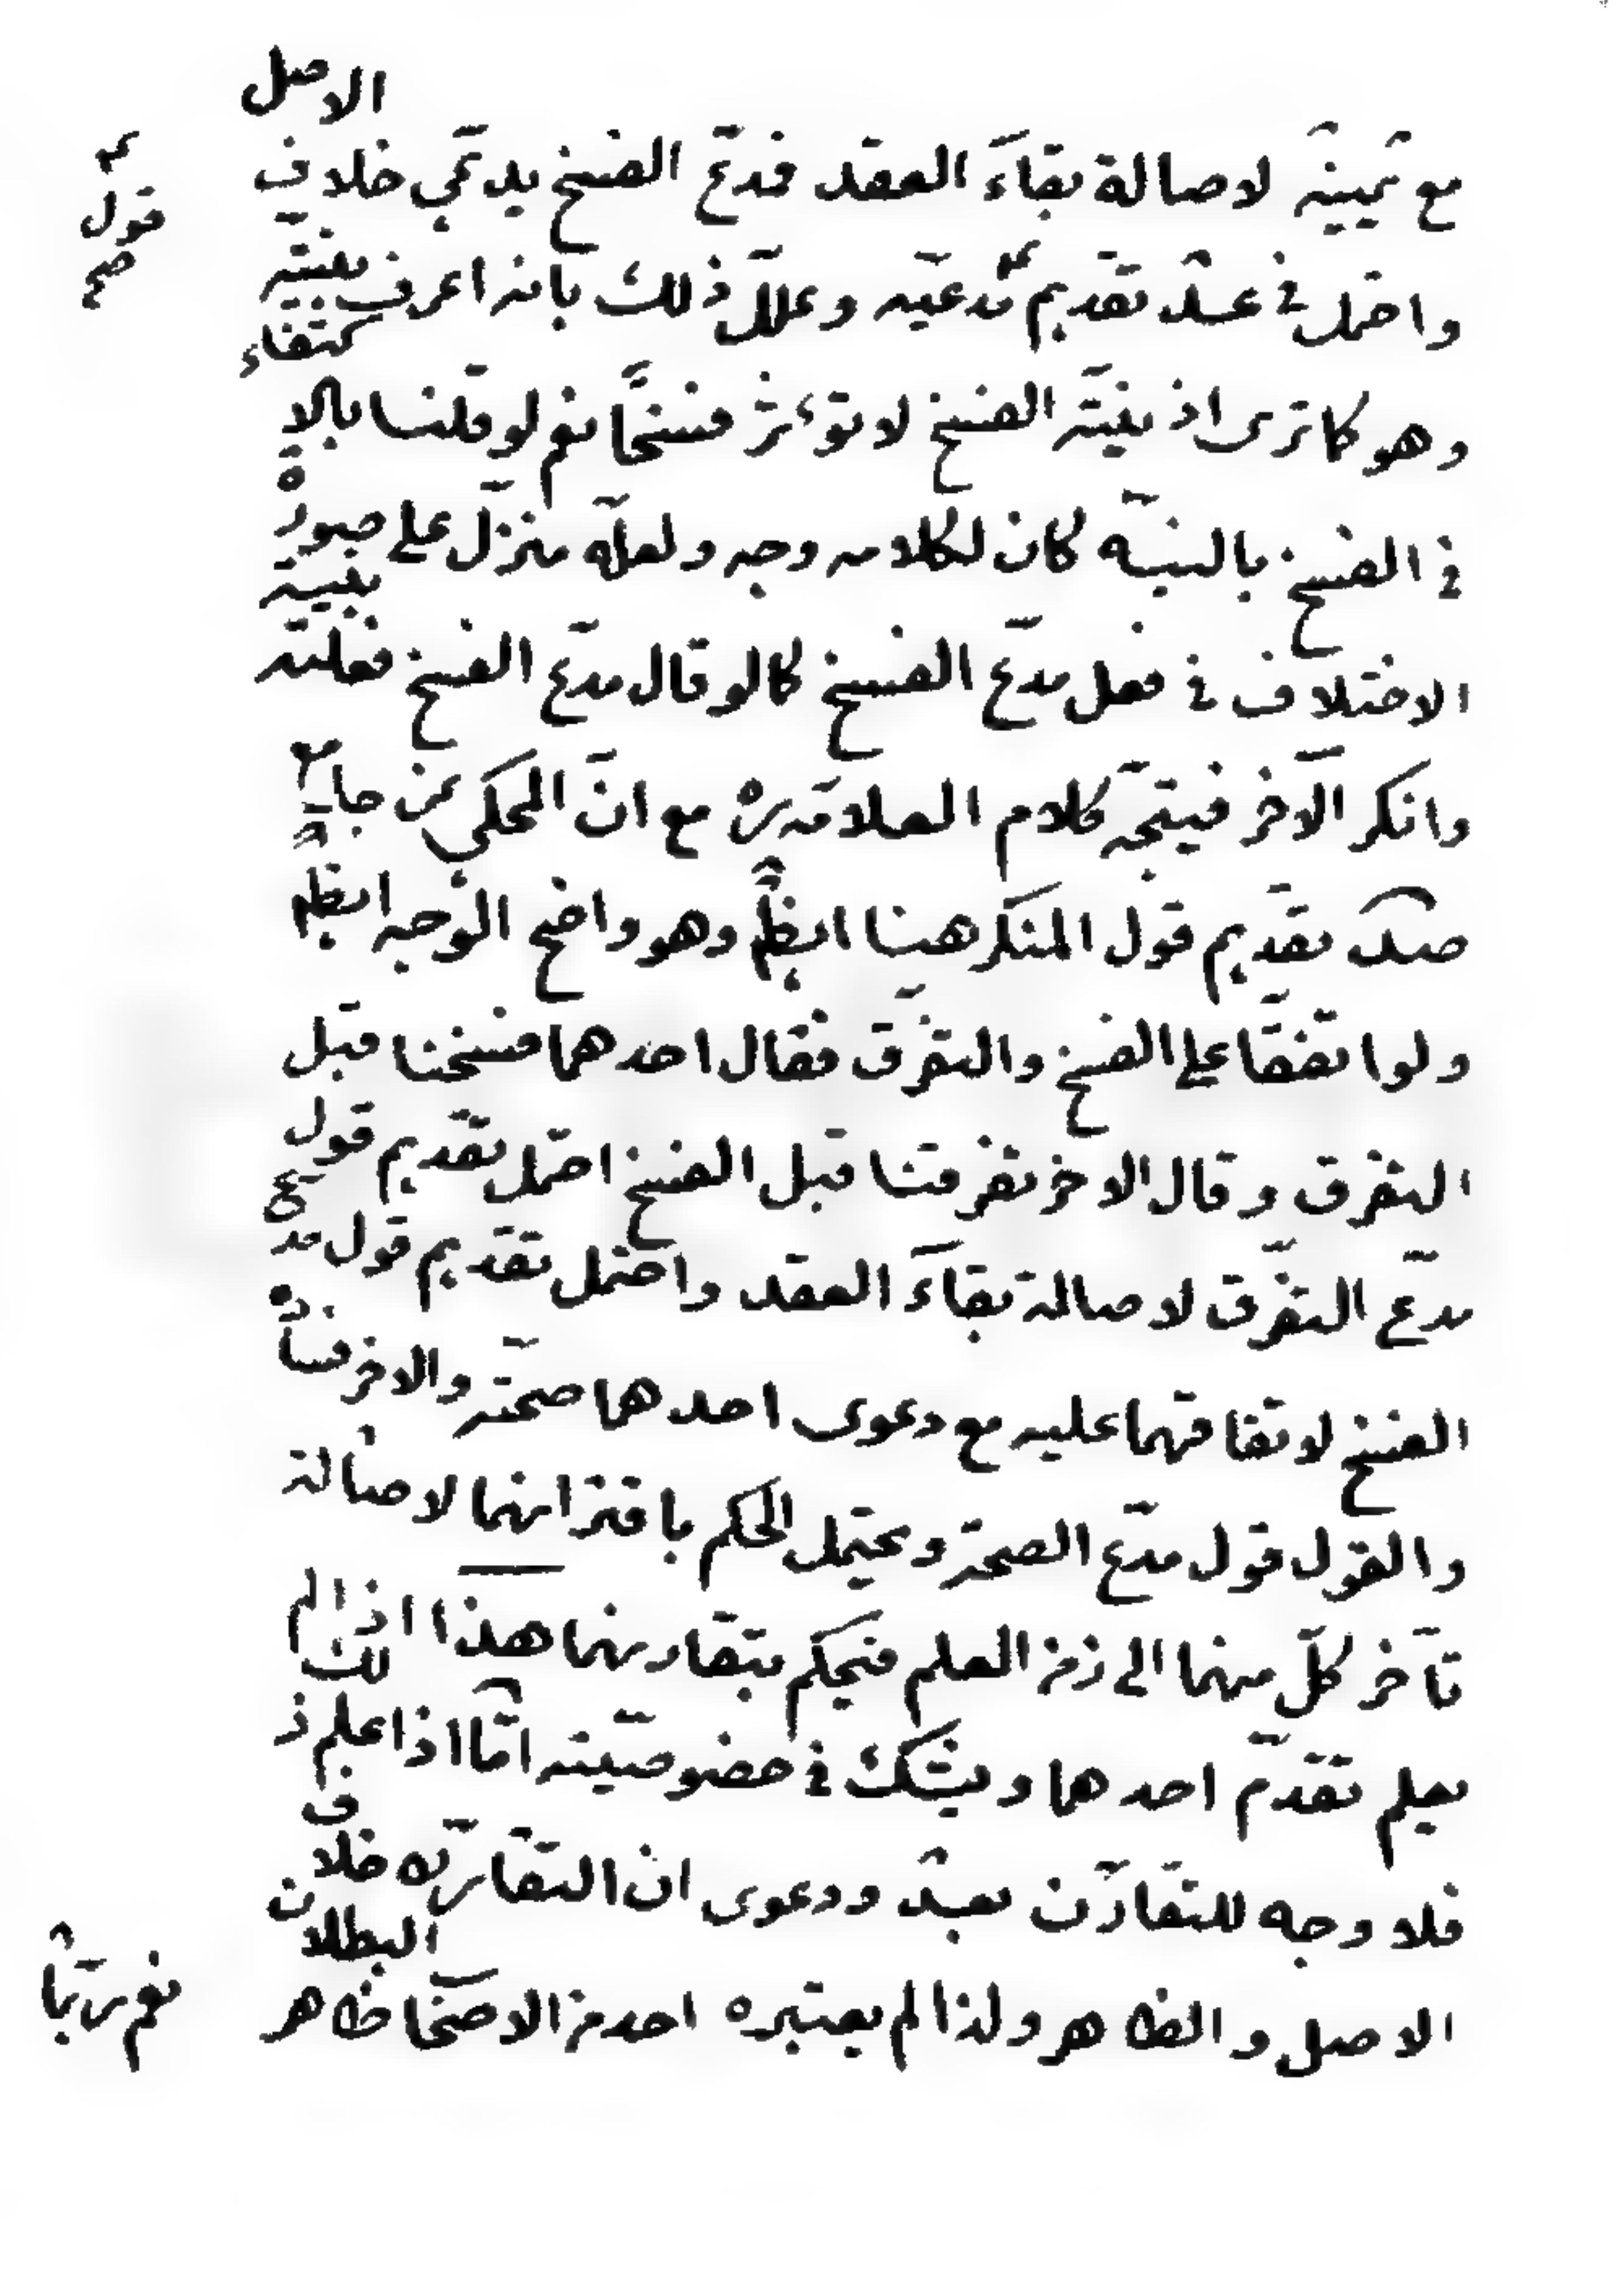 مع يمينه لاصالة بقاء العقد فمدّع الفسخ يدعي خلاف الاصل
واحتمل في عد تقديم مدعيه وعلل ذلك بانه اعرف بنيّته
قول
صح
وهو كما ترى اذ نيّة الفسخ لا تؤثر فسخًا نعم لو قلنا بالاكتفاء
في الفسخ بالنيّة كان لكلامه وجه ولعلّه منزّل على صورة
الاختلاف في فعل مدّع الفسخ كما لو قال مدّع الفسخ فعلته بنيّة
وانكر الآخر فيتجّه كلام العلامة ره مع انّ المحكي عن جامع
صد تقديم قول المنكر هنا ايضًا وهو واضح الوجه ايضا
ولو اتفقا على الفسخ والتفرّق فقال احدهما فسخنا قبل
التفرق وقال الاخر تفرقنا قبل الفسخ احتمل تقديم قول
مدّع التفرّق لاصالة بقاء العقد واحتمل تقديم قول مدّع
الفسخ لاتفاقهما عليه مع دعوى احدهما صحّته والاخر فساده
والقول قول مدّع الصحة ويحتمل الحكم باقترانهما لاصالة
تأخر كلّ منهما الى زمن العلم فيحكم بتقارنهما هذا اذا لم
يعلم تقدّم احدهما ويشكّ في خصوصيّته امّا اذا علم ذلك
فلا وجه للتقارن بعد ودعوى ان التقارن خلاف
الاصل والظاهر ولذا لم يعتبره احد من الاصحاب ظاهر البطلان
نعم ربّما